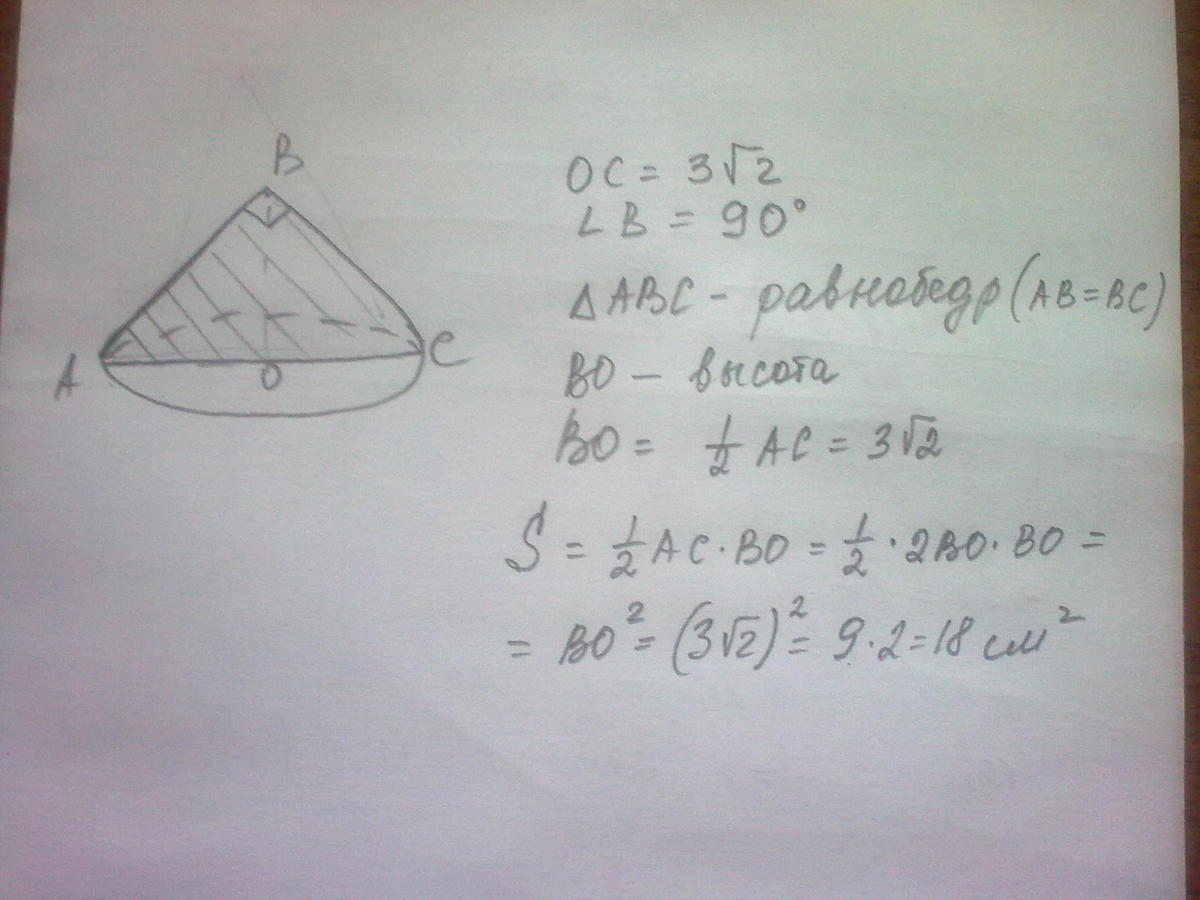 B
A
O
C
OC = 3√2
∠B = 90°
△ABC - равнобедр (AB=BC)
BO - высота
BO = 1/2 AC = 3√2
S = 1/2 AC · BO = 1/2 · 2BO · BO =
= BO² = (3√2)² = 9 · 2 = 18 см²